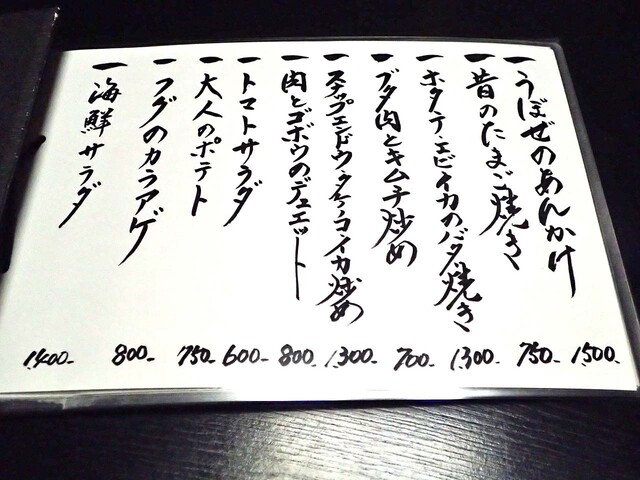 一 うぼぜのあんかけ 1,500-
一 昔のたまご焼き 750-
一 ホタテ・エビイカのバタ焼き 1,300-
一 ブタ肉とキムチ炒め 700-
一 スナップエンドウ・タケノコ・イカ炒め 1,300-
一 肉とゴボウのデュエット 800-
一 トマトサラダ 600-
一 大人のポテト 750-
一 フグのカラアゲ 800-
一 海鮮サラダ 1,400-